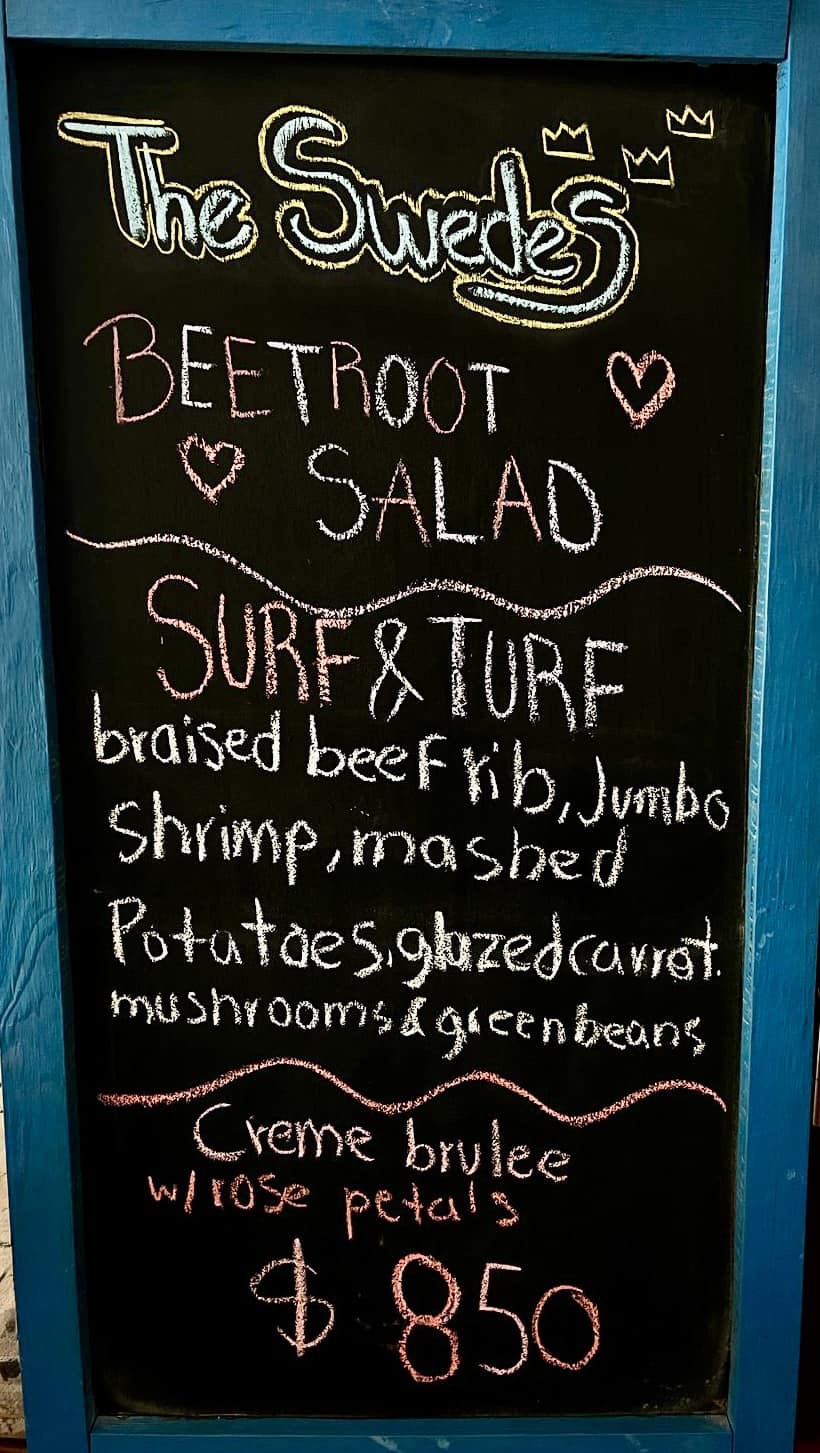 The Swedes
BEETROOT
SALAD
SURF & TURF
braised beef rib, Jumbo
Shrimp, mashed
Potatoes, glazed carrot.
mushrooms & green beans
Creme brulee
w/ rose petals
$ 850